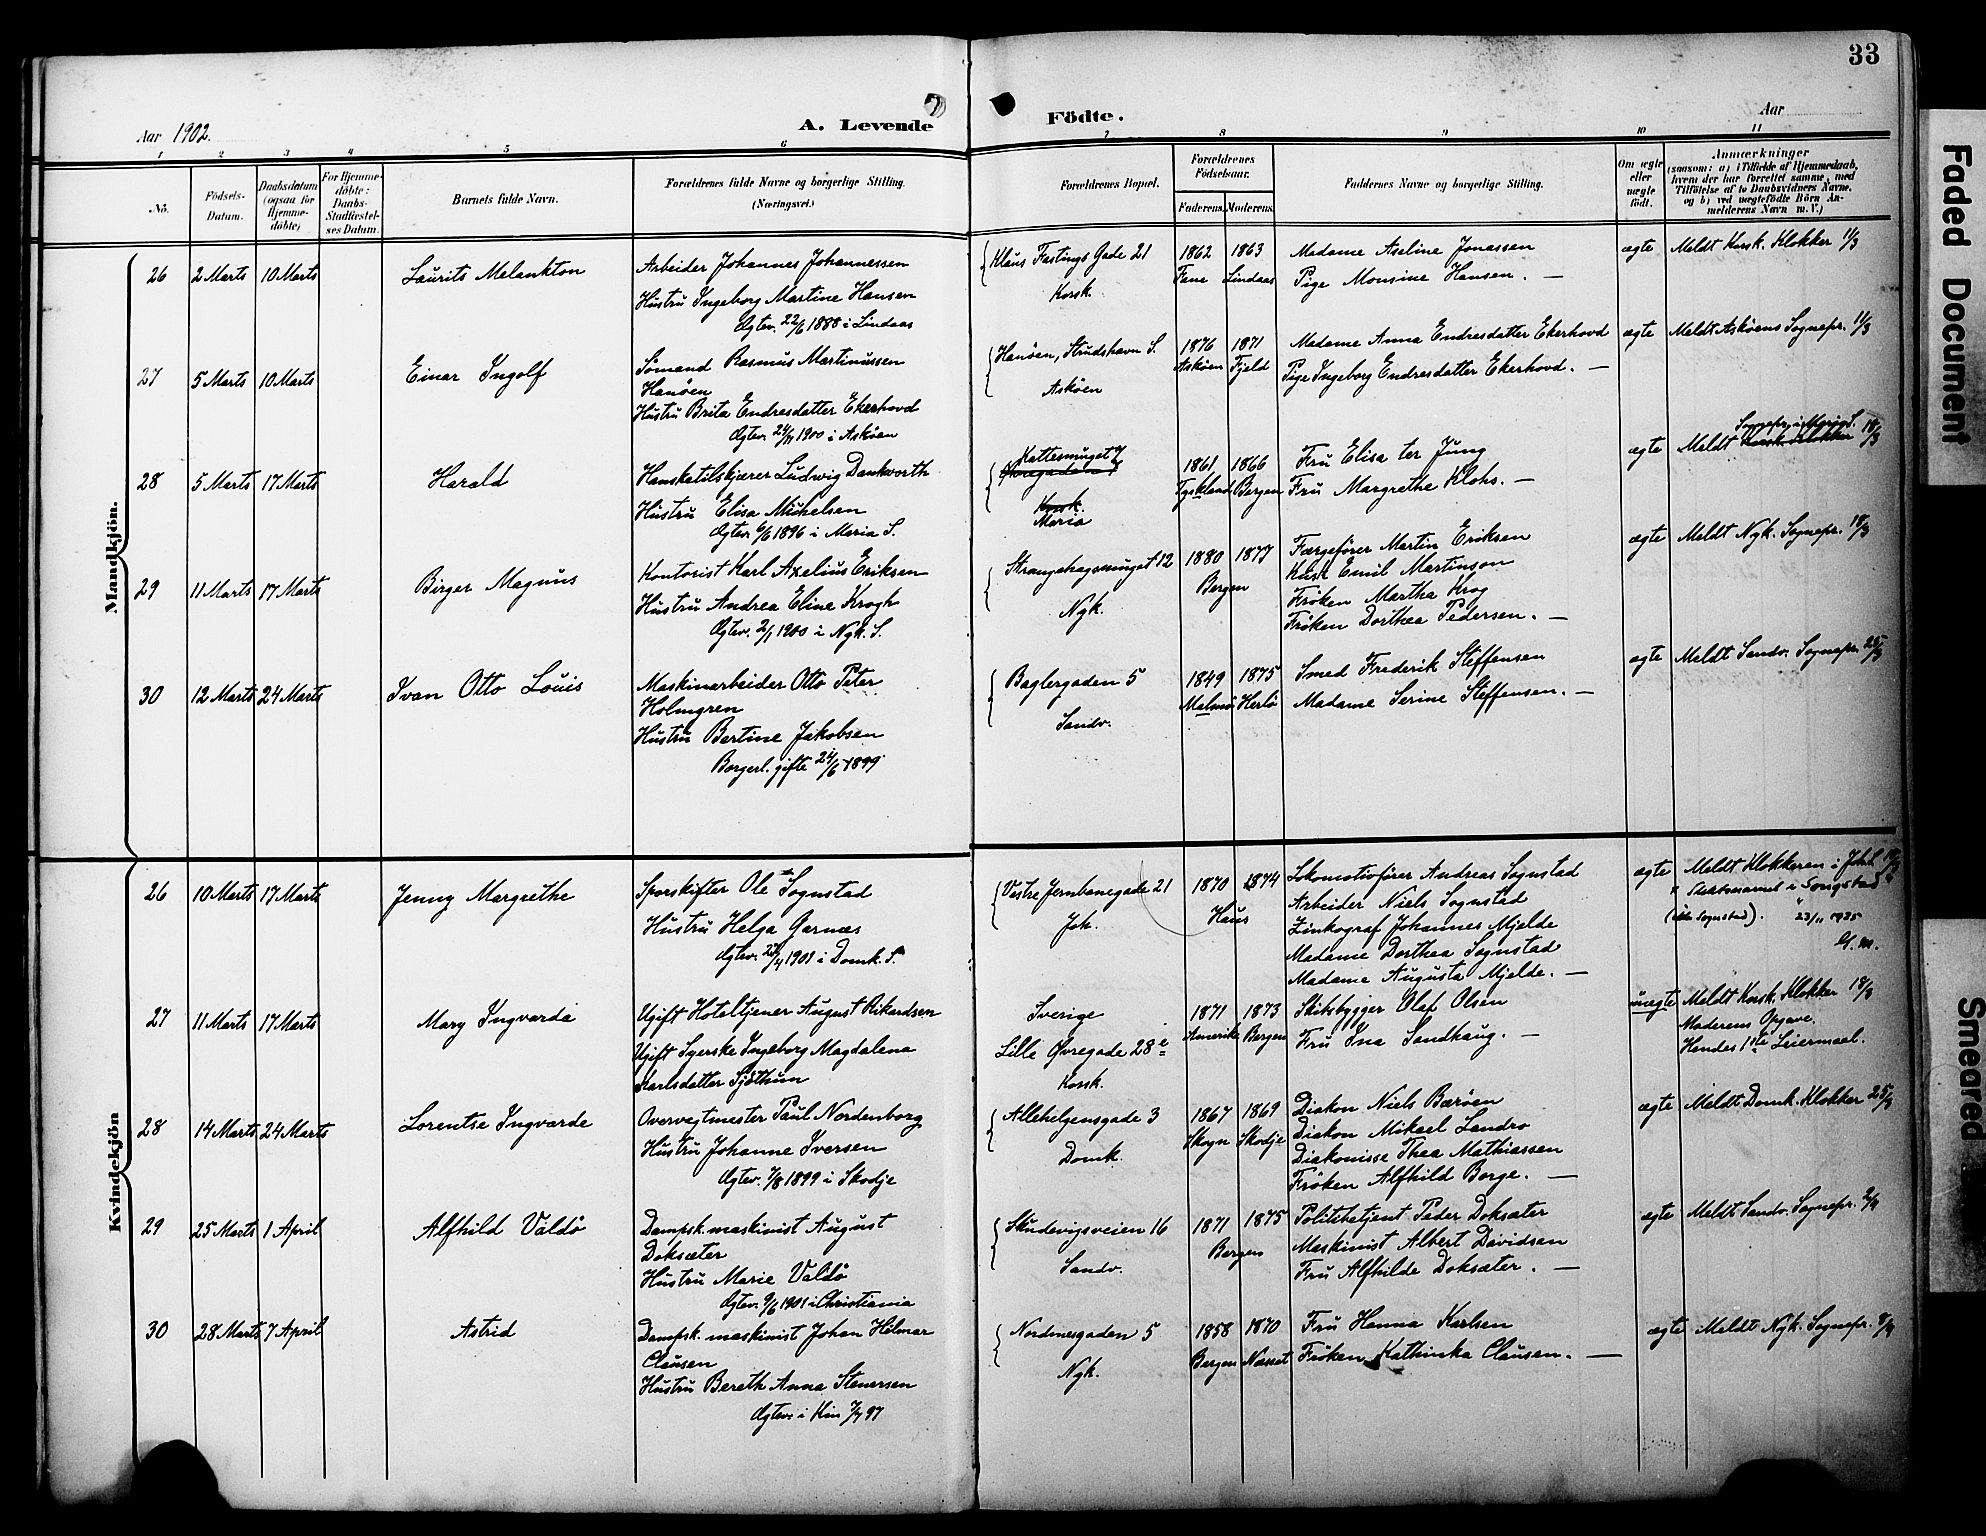 33
Aar 1902.
A. Levende Födte.
Aar
1 2 3 4 5 6 7 8 9 10 11
No.
Födsels-Datum.
Daabsdatum (ogsaa for Hjemme-döbte)
For Hjemme-döbte: Daabs-Stadfæstel-ses Datum.
Barnets fulde Navn.
Forældrenes fulde Navne og borgerlige Stilling. (Næringsvei.)
Forældrenes Bopæl.
Forældrenes Födselsaar.
Faderens. Moderens.
Faddernes Navne og borgerlige Stilling.
Om ægte eller uægte födt.
Anmærkninger
(saasom: a) i Tilfælde af Hjemmedaab, hvem der har forrettet samme, med Tilföielse af to Daabsvidners Navne, og b) ved uægtefödte Börn An-melderens Navn m. V.)
Mandkjön.
26 2 Marts 10 Marts Laurits Melankton
Arbeider Johannes Johannessen
Hustru Ingeborg Martine Hansen
Ægtev. 22/6 1888 i Lindaas
Klaus Fastings Gade 21
Korsk.
1862 1863
Fane Lindaas
Madame Aseline Jonassen
Pige Monsine Hansen. —
ægte Meldt Korsk. Klokker 11/3
27 5 Marts 10 Marts Einar Ingolf
Sömand Rasmus Martinussen
Hanöen
Hustru Brita Endresdatter Ekerhovd
Ægtev. 24/11 1900 i Asköen
Hanöen, Strudshavn S.
Asköen
1876 1871
Asköen Fjeld
Madame Anna Endresdatter Ekerhovd
Pige Ingeborg Endresdatter Ekerhovd. —
ægte Meldt Asköens Sognepr. 11/3
28 5 Marts 17 Marts Harald
Hansketilskjærer Ludwig Dankworth
Hustru Elisa Michelsen
Ægtev. 6/6 1896 i Maria S.
Kattesmuget 7
Korsk.
Maria
1861 1866
Tyskland Bergen
Fru Elisa ter Jung
Fru Margrethe Klohs. —
ægte Meldt Korsk. Klokker 18/3
29 11 Marts 17 Marts Birger Magnus
Kontorist Karl Axelius Eriksen
Hustru Andrea Eline Krogh
Ægtev. 2/1 1900 i Nyk. S.
Strangehagesmuget 12
Nyk.
1880 1877
Bergen
Færgefører Martin Eriksen
Kusk Emil Martinson
Frøken Martha Krog
Frøken Dorthea Pedersen. —
ægte Meldt Nyk. Sognepr. 18/3
30 12 Marts 24 Marts Ivan Otto Louis
Maskinarbeider Otto Peter
Holmgren
Hustru Bertine Jakobsen
Borgerl. gifte 24/6 1899
Baglergaden 5
Sandv.
1849 1875
Malmö Herlö
Smed Frederik Steffensen
Madame Serine Steffensen. —
ægte Meldt Sandv. Sognepr. 25/3
Kvindekjön
26 10 Marts 17 Marts Jenny Margrethe
Sporskifter Ole Sognstad
Hustru Helga Garnæs
1901 i Domk. S.
Vestre Jernbanegade 21
Joh.
1870 1874
Haus
Lokomotivfører Andreas Sognstad
Arbeider Niels Sognstad
Zinkograf Johannes Mjelde
Madame Dorthea Sognstad
Madame Augusta Mjelde. —
ægte Meldt Klokkeren i Joh. 18/3
Sognstad). 23/11 1925
27 11 Marts 17 Marts Mary Ingvarda
Ugift Hoteltjener August Rikardsen
Ugift Syerske Ingeborg Magdalena
Karlsdatter Sjöthun
Sverige
Lille Øvregade 28
Korsk.
1871 1873
Amerika Bergen
Skibsbygger Olaf Olsen
Fru Ina Sandhaug. —
uægte Meldt Korsk. Klokker 18/3
Moderens Opgave.
Hendes 1ste Leiermaal.
28 14 Marts 24 Marts Lorentse Ingvarde
Overvegtmester Paul Nordenborg
Hustru Johanne Iversen
Ægtev. 7/8 1899 i Skodje
Allehelgensgade 3
Domk.
1867 1869
Skogn Skodje
Diakon Niels Baröen
Diakon Mikael Landro
Diakonisse Thea Mathiassen
Frøken Alfhild Borge. —
ægte Meldt Domk. Klokker 25/3
29 25 Marts 1 April Alfhild Valdö
Dampsk. maskinist August
Doksæter
Hustru Marie Valdö
Ægtev. 9/6 1901 i Christiania
Skudevigsveien 16
Sandv.
1871 1875
Bergen
Politibetjent Peder Doksæter
Maskinist Albert Davidsen
Fru Alfhilde Doksæter. —
ægte Meldt Sandv. Sognepr. 2/4
30 28 Marts 7 April Astrid
Dampsk. maskinist Johan Hilmar
Clausen
Hustru Bereth Anna Stenersen
Ægtev. i Kin 7/7 97
Nordnesgaden 5
Nyk.
1858 1870
Bergen Næsset
Fru Hanna Karlsen
Frøken Kathinka Clausen. —
ægte Meldt Nyk. Sognepr. 8/4
Faded Document
Smeared